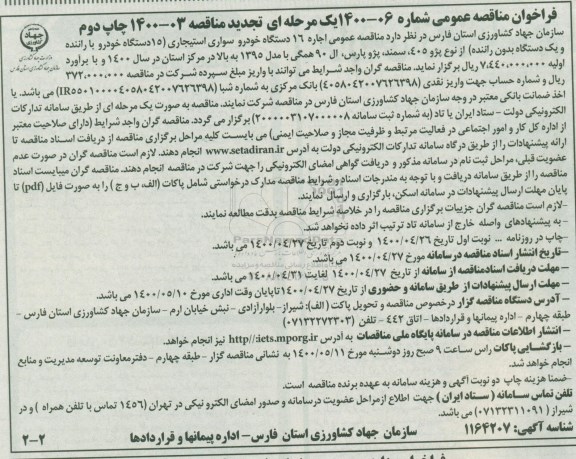 فراخوان مناقصه عمومی شماره ۰۶-۱۴۰۰یک مرحله ای تجدید مناقصه ۰۳-۱۴۰۰ چاپ دوم
سازمان جهاد کشاورزی استان فارس در نظر دارد مناقصه عمومی اجاره ۱۶ دستگاه خودرو سواری استیجاری (۱۵دستگاه خودرو با راننده
و یک دستگاه بدون راننده) از نوع پژو ۴۰۵، سمند، پژو پارس، ال ۹۰ همگی با مدل ۱۳۹۵ به بالا در مرکز استان در سال ۱۴۰۰ و با برآورد
اولیه ۷,۴۴۰,۰۰۰,۰۰۰ ریال برگزار نماید. مناقصه گران واجد شرایط می توانند با واریز مبلغ سپرده شرکت در مناقصه ۳۷۲,۰۰۰,۰۰۰
ریال و شماره حساب جهت واریز نقدی (۴۰۵۸۰۴۲۰۰۷۶۲۶۳۹۸) بانک مرکزی به شماره شبا (IR۵۵۰۱۰۰۰۰۴۰۵۸۰۴۲۰۰۷۶۲۶۳۹۸) می باشد. یا
اخذ ضمانت بانکی معتبر در وجه سازمان جهاد کشاورزی استان فارس در مناقصه شرکت نمایند. مناقصه به صورت یک مرحله ای از طریق سامانه تدارکات
الکترونیکی دولت - ستاد ایران یا تاد (به شماره ثبت سامانه ۲۰۰۰۰۰۳۱۰۷۰۰۰۰۰۸) برگزار می گردد. مناقصه گران واجد شرایط (دارای صلاحیت معتبر
از اداره کل کار و امور اجتماعی در فعالیت مرتبط و ظرفیت مجاز و صلاحیت ایمنی) می بایست کلیه مراحل برگزاری مناقصه از دریافت اسناد مناقصه تا
ارائه پیشنهادات را از طریق درگاه سامانه تدارکات الکترونیکی دولت به آدرس www.setadiran.ir انجام دهند. لازم است مناقصه گران در صورت عدم
عضویت قبلی، مراحل ثبت نام در سامانه مذکور و دریافت گواهی امضای الکترونیکی را جهت شرکت در مناقصه انجام دهند. مناقصه گران میبایست اسناد
مناقصه را از طریق سامانه دریافت و با توجه به مندرجات اسناد و شرایط مناقصه مدارک درخواستی شامل پاکات (الف، ب و ج) را به صورت فایل (pdf) تا
پایان مهلت ارسال پیشنهادات در سامانه اسکن، بارگزاری و ارسال نمایند.
-لازم است مناقصه گران جزییات برگزاری مناقصه را در خلاصه شرایط مناقصه بدقت مطالعه نمایند.
- به پیشنهادهای واصله خارج از سامانه تاد ترتیب اثر داده نخواهد شد.
-چاپ در روزنامه ... نوبت اول تاریخ ۱۴۰۰/۰۴/۲۶ و نوبت دوم تاریخ ۱۴۰۰/۰۴/۲۷ می باشد.
-تاریخ انتشار اسناد مناقصه در سامانه مورخ ۱۴۰۰/۰۴/۲۷ می باشد.
- مهلت دریافت اسنادمناقصه از سامانه از تاریخ ۱۴۰۰/۰۴/۲۷ لغایت ۱۴۰۰/۰۴/۳۱ می باشد.
- مهلت ارسال پیشنهادات از طریق سامانه و حضوری از تاریخ ۱۴۰۰/۰۴/۲۷تاپایان وقت اداری مورخ ۱۴۰۰/۰۵/۱۰ می باشد.
- آدرس دستگاه مناقصه گزار درخصوص مناقصه و تحویل پاکت (الف): شیراز- بلوارآزادی - نبش خیابان ارم - سازمان جهاد کشاورزی استان فارس -
طبقه چهارم - اداره پیمانها و قراردادها - اتاق ۴۴۲ - تلفن (۰۷۱۳۲۲۷۳۳۰۳)
- انتشار اطلاعات مناقصه در سامانه پایگاه ملی مناقصات به آدرس http//:iets.mporg.ir نیز انجام خواهد.
- بازگشایی پاکات راس ساعت ۹ صبح روز دوشنبه مورخ ۱۴۰۰/۰۵/۱۱ به نشانی مناقصه گزار - طبقه چهارم - دفترمعاونت توسعه مدیریت و منابع
انجام خواهد شد.
-ضمنا هزینه چاپ دو نوبت آگهی و هزینه سامانه به عهده برنده مناقصه است.
تلفن تماس سامانه (ستاد ایران) جهت اطلاع ازمراحل عضویت درسامانه و صدور امضای الکترونیکی در تهران (۱۴۵۶ تماس با تلفن همراه) و در
شیراز (۰۷۱۳۲۳۱۱۰۹۱) می باشد.
شناسه آگهی: ۱۱۶۴۲۰۷ سازمان جهاد کشاورزی استان فارس- اداره پیمانها و قراردادها ۲-۲